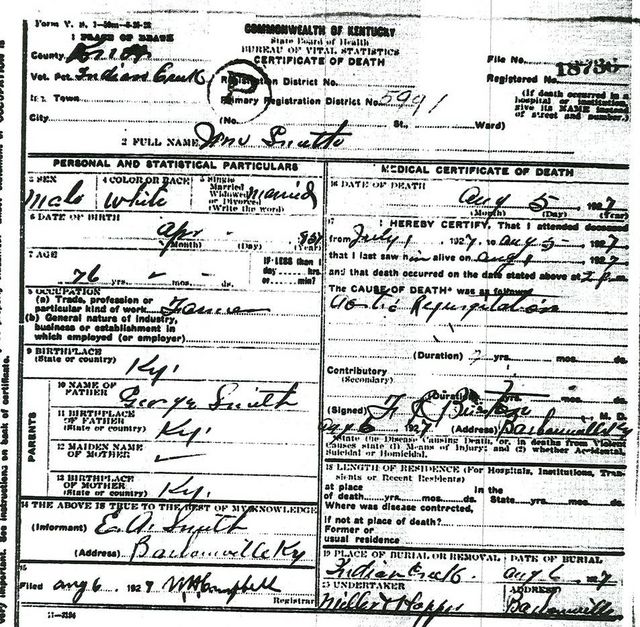 Form V. S. 1-50m-5-26-22
1 PLACE OF DEATH
COMMONWEALTH OF KENTUCKY
State Board of Health
BUREAU OF VITAL STATISTICS
CERTIFICATE OF DEATH
County Knox
Vot. Pct. Indian Creek
Registration District No.
File No. 18736
Registered No.
Inc. Town
Primary Registration District No. 5991
(If death occurred in a hospital or institution, give its NAME instead of street and number.)
City
(No. St., Ward)
2 FULL NAME Wm Smith
PERSONAL AND STATISTICAL PARTICULARS
3 SEX Male
4 COLOR OR RACE White
5 Single Married Widowed or Divorced (Write the word) Married
6 DATE OF BIRTH
Apr
(Month) (Day) (Year)
7 AGE
76 yrs. mos. ds.
IF LESS than 1 day hrs. or min.?
8 OCCUPATION
(a) Trade, profession or particular kind of work Farmer
(b) General nature of industry, business or establishment in which employed (or employer)
9 BIRTHPLACE
(State or country) Ky.
PARENTS
10 NAME OF FATHER George Smith
11 BIRTHPLACE OF FATHER
(State or country) Ky.
12 MAIDEN NAME OF MOTHER
13 BIRTHPLACE OF MOTHER
(State or country) Ky.
14 THE ABOVE IS TRUE TO THE BEST OF MY KNOWLEDGE
(Informant) E. A. Smith
(Address) Barbourville Ky
15
Filed Aug 6 1927 Campbell
Registrar
11-3184
MEDICAL CERTIFICATE OF DEATH
16 DATE OF DEATH
Aug 5 1927
(Month) (Day) (Year)
17 I HEREBY CERTIFY, That I attended deceased
from July 1 1927, to Aug 5 1927
that I last saw him alive on Aug 1927
and that death occurred on the date stated above at 2 p m.
The CAUSE OF DEATH* was as follows:
Aortic Regurgitation
(Duration) yrs. mos. ds.
Contributory
(Secondary)
(Duration) yrs. mos. ds.
(Signed) M. D.
Aug 6 1927 (Address) Barbourville Ky
*State the Disease Causing Death, or, in deaths from Violent Causes state (1) Means of Injury; and (2) whether Accidental, Suicidal or Homicidal.
18 LENGTH OF RESIDENCE (For Hospitals, Institutions, Transients or Recent Residents)
at place of death yrs. mos. ds. In the State yrs. mos. ds.
Where was disease contracted,
if not at place of death?
Former or usual residence
19 PLACE OF BURIAL OR REMOVAL
DATE OF BURIAL
Indian Creek Aug 6 1927
20 UNDERTAKER
ADDRESS
Barbourville